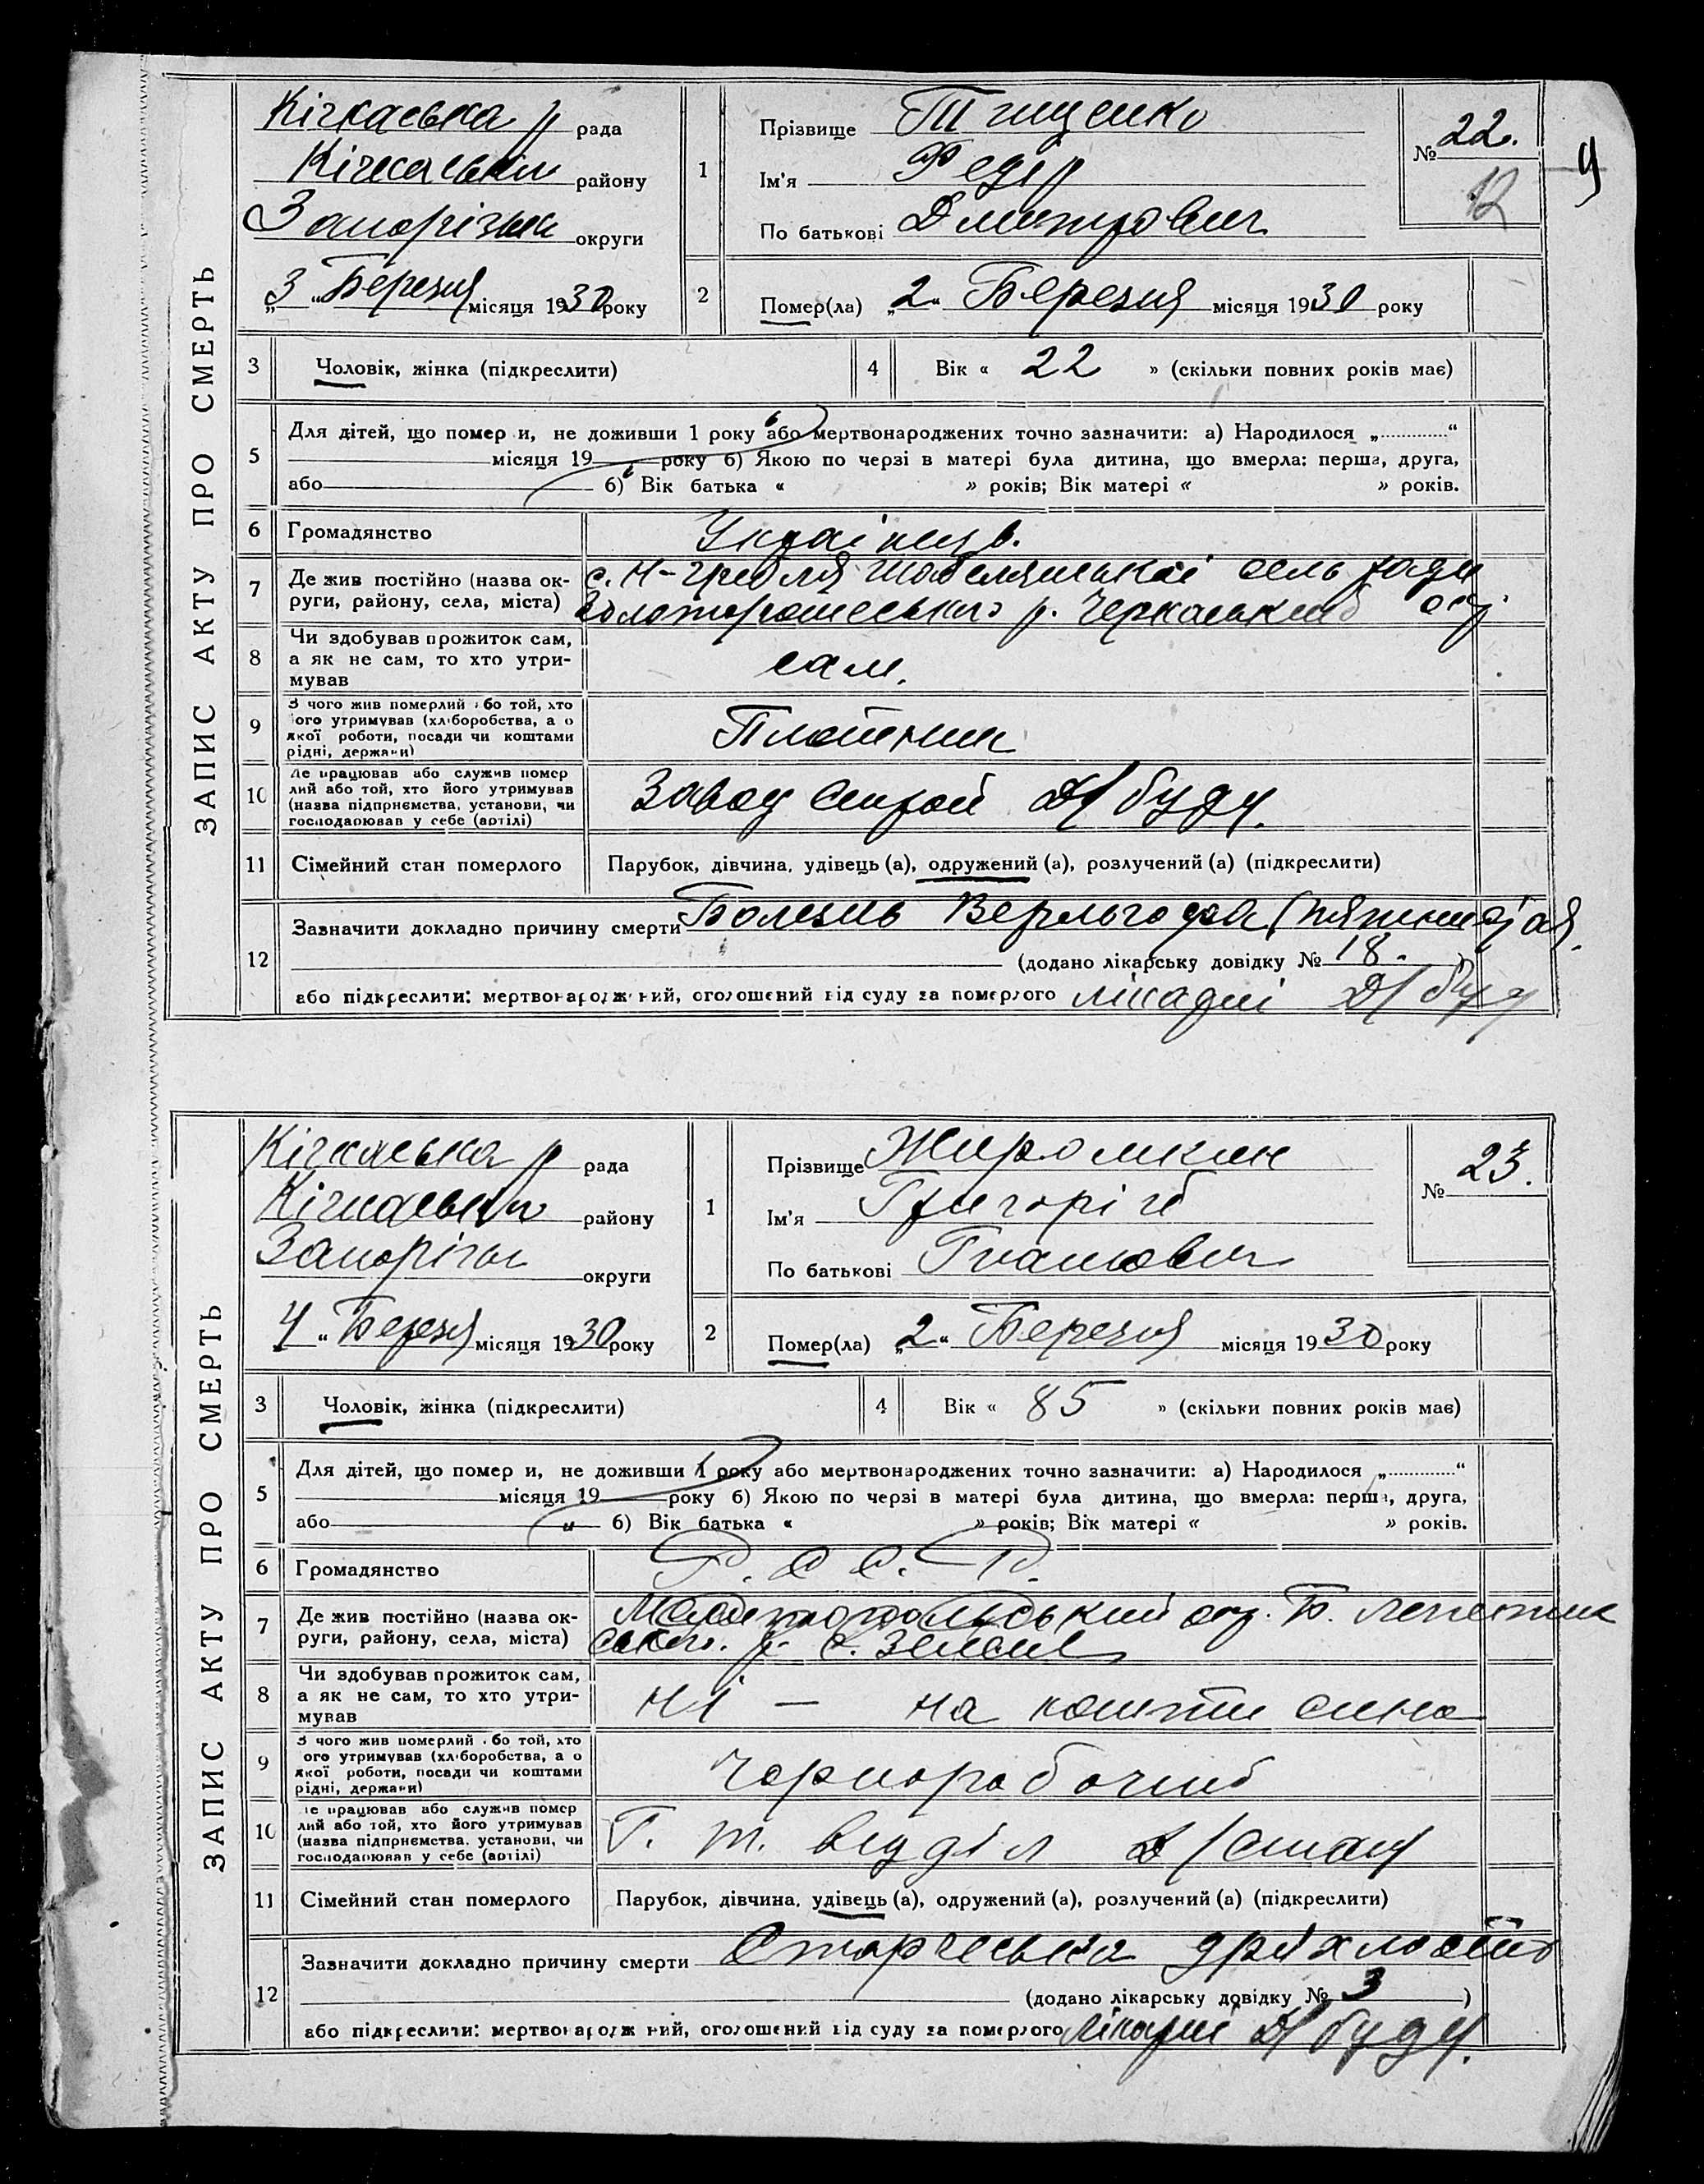 ЗАПИС АКТУ ПРО СМЕРТЬ
Кічкаська р рада
Кічкаськ району
Запорізька округи
„3“ Березня місяця 1930 року
1
Прізвище Тищенко
Ім'я Федір
По батькові Дмитрович
№ 22.
12
9
2
Помер(ла) „2“ Березня місяця 1930 року
3 Чоловік, жінка (підкреслити)
4 Вік « 22 » (скільки повних років має)
5 Для дітей, що помер и, не доживши 1 року або мертвонароджених точно зазначити: а) Народилося „............“
місяця 19 року б) Якою по черзі в матері була дитина, що вмерла: перша, друга,
або б) Вік батька « » років; Вік матері « » років.
6 Громадянство Українць.
7 Де жив постійно (назва ок-
руги, району, села, міста)
с. Н-Гребля сель ради
р. Черкаський окр
8 Чи здобував прожиток сам,
а як не сам, то хто утри-
мував
сам.
9 З чого жив померлий або той, хто
його утримував (хліборобства, а о
якої роботи, посади чи коштами
рідні, держави)
Плотник
10 Де працював або служив помер
лий або той, хто його утримував
(назва підприємства, установи, чи
господарював у себе (артілі)
Завод Д/буду.
11 Сімейний стан померлого Парубок, дівчина, удівець (а), одружений (а), розлучений (а) (підкреслити)
12 Зазначити докладно причину смерти Болезнь Верльгофа
(додано лікарську довідку № 18. )
або підкреслити: мертвонароджений, оголошений від суду за померлого Д/буду
ЗАПИС АКТУ ПРО СМЕРТЬ
Кічкаська р рада
Кічкаськ району
Запорізьк округи
4 „ Березня місяця 1930 року
1
Прізвище Жиромкин
Ім'я Григорій
По батькові Гнатович
№ 23.
2
Помер(ла) „2“ Березня місяця 1930 року
3 Чоловік, жінка (підкреслити)
4 Вік « 85 » (скільки повних років має)
5 Для дітей, що помер и, не доживши 1 року або мертвонароджених точно зазначити: а) Народилося „............“
місяця 19 року б) Якою по черзі в матері була дитина, що вмерла: перша, друга,
або б) Вік батька « » років; Вік матері « » років.
6 Громадянство Р.С.С.Р.
7 Де жив постійно (назва ок-
руги, району, села, міста)
Мелітопольський окр. Б. Лепетих
ського. р. с.
8 Чи здобував прожиток сам,
а як не сам, то хто утри-
мував
ні — на кошти сина
9 З чого жив померлий або той, хто
ого утримував (хліборобства, а о
якої роботи, посади чи коштами
рідні, держави)
Чорноробочий
10 Де працював або служив помер
лий або той, хто його утримував
(назва підприємства, установи, чи
господарював у себе (артілі)
Г. т. відділ
11 Сімейний стан померлого Парубок, дівчина, удівець (а), одружений (а), розлучений (а) (підкреслити)
12 Зазначити докладно причину смерти Старческа дряхлость
(додано лікарську довідку № 3 )
або підкреслити: мертвонароджений, оголошений від суду за померлого Лікарні Д/буду.